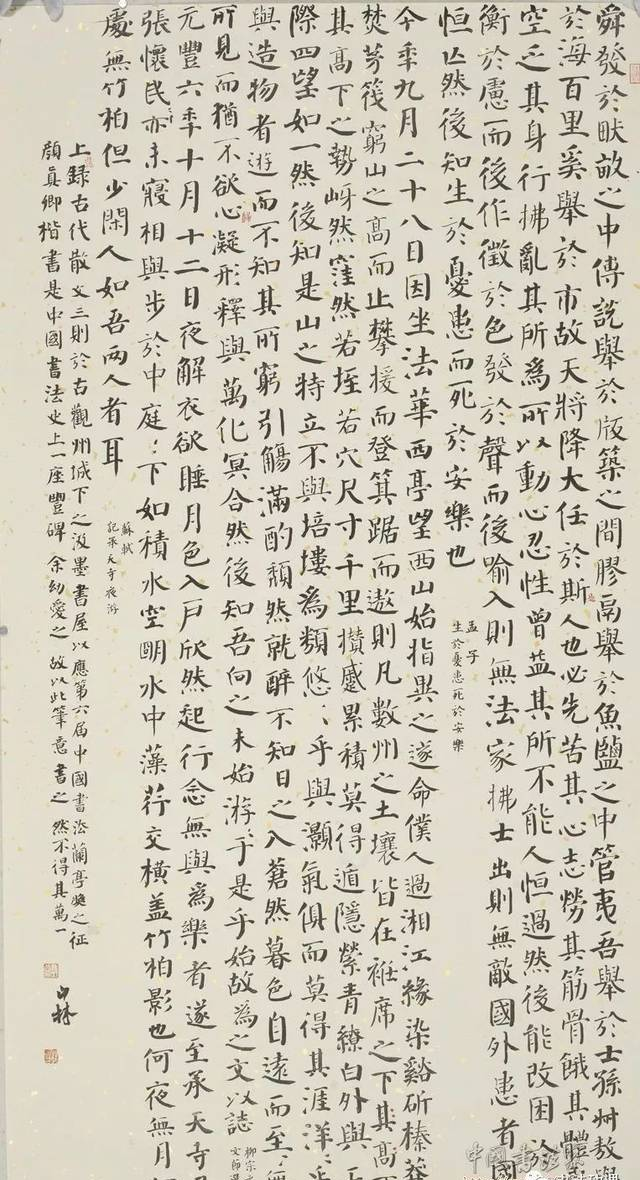 舜發於畎畝之中傅說舉於版築之間膠鬲舉於魚鹽之中管夷吾舉於士孫叔敖舉
於海百里奚舉於市故天將降大任於斯人也必先苦其心志勞其筋骨餓其體
空乏其身行拂亂其所為所以動心忍性曾益其所不能人恒過然後能改困於
衡於慮而後作徵於色發於聲而後喻入則無法家拂士出則無敵國外患者國
恒亡然後知生於憂患而死於安樂也
孟子
生於憂患死於安樂
今年九月二十八日因坐法華西亭望西山始指異之遂命僕人過湘江緣染谿斫榛莽
焚茅筏窮山之高而止攀援而登箕踞而遨則凡數州之土壤皆在衽席之下其高
其高下之勢岈然窪然若垤若穴尺寸千里攢蹙累積莫得遁隱縈青繚白外與
際四望如一然後知是山之特立不與培塿為類悠〻乎與灝氣俱而莫得其涯洋〻
與造物者遊而不知其所窮引觴滿酌頹然就醉不知日之入蒼然暮色自遠而至〻無
所見而猶不欲心凝形釋與萬化冥合然後知吾向之未始游〻于是乎始故為之文以誌
柳宗
元豐六年十月十二日夜解衣欲睡月色入戶欣然起行念無與為樂者遂至承天寺
張懷民亦未寢相與步於中庭〻下如積水空明水中藻荇交橫蓋竹柏影也何夜無月
處無竹柏但少閑人如吾兩人者耳
蘇軾
記承天寺夜游
上錄古代散文三則於古觀州城下之汲墨書屋以應第六届中國書法蘭亭獎之征
顏真卿楷書是中國書法史上一座豐碑余幼愛之故以此筆意書之然不得其萬一